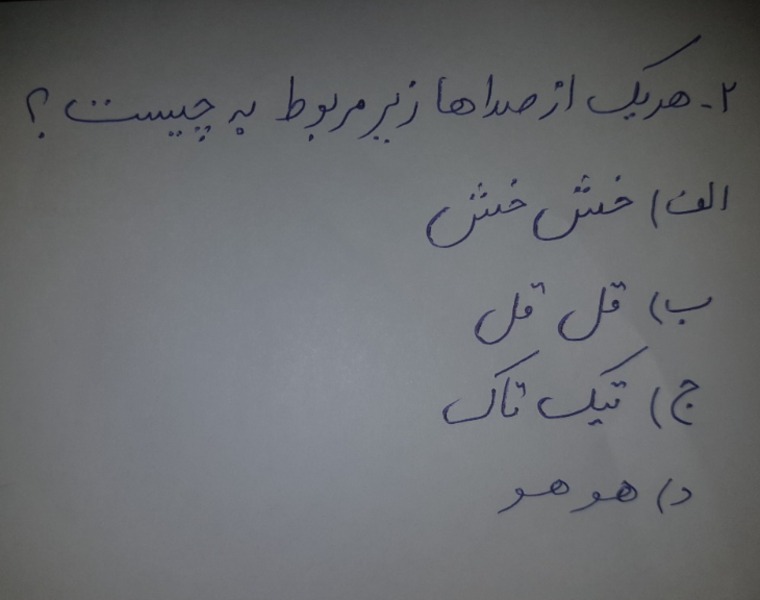 ۲- هریک از صداها زیر مربوط به چیست ؟
الف) خش خش
ب) قل قل
ج) تیک تاک
د) هو هو